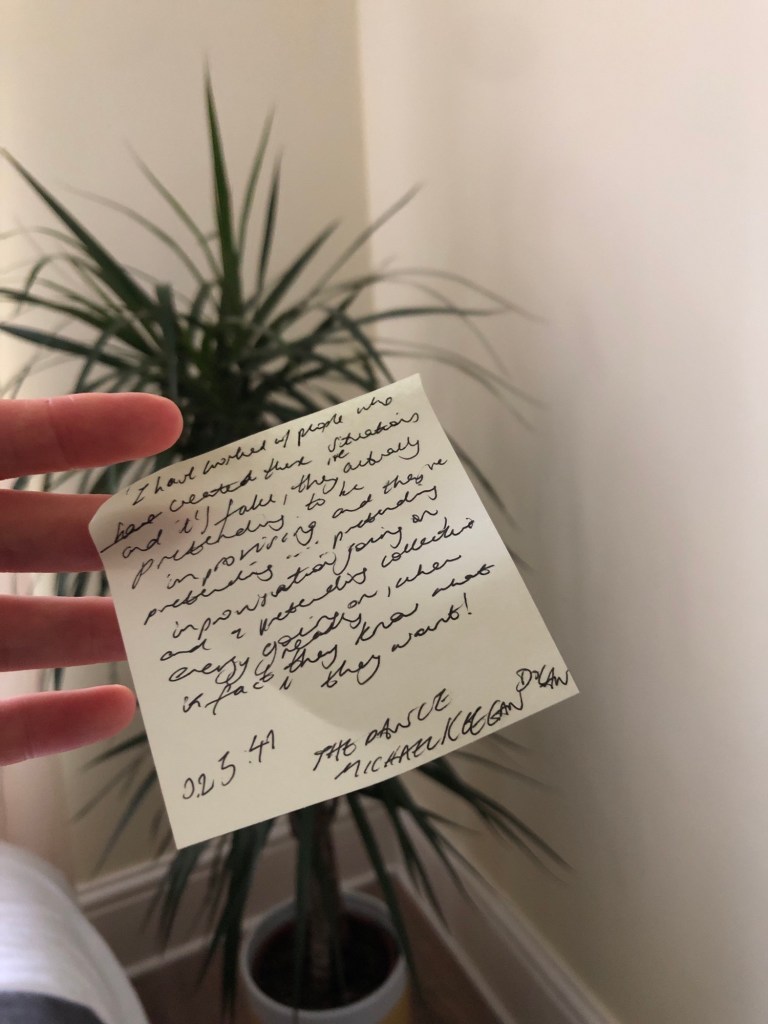 'I have worked w/ people who
have created these situations
and it's fake, they're actually
pretending to be
improvising and they're
pretending ... pretending
improvisation going on
and a pretending collective
energy going on, when
really
in fact they know what
they want!
0.25.41 THE DANCE
MICHAEL KEEGAN DOLAN